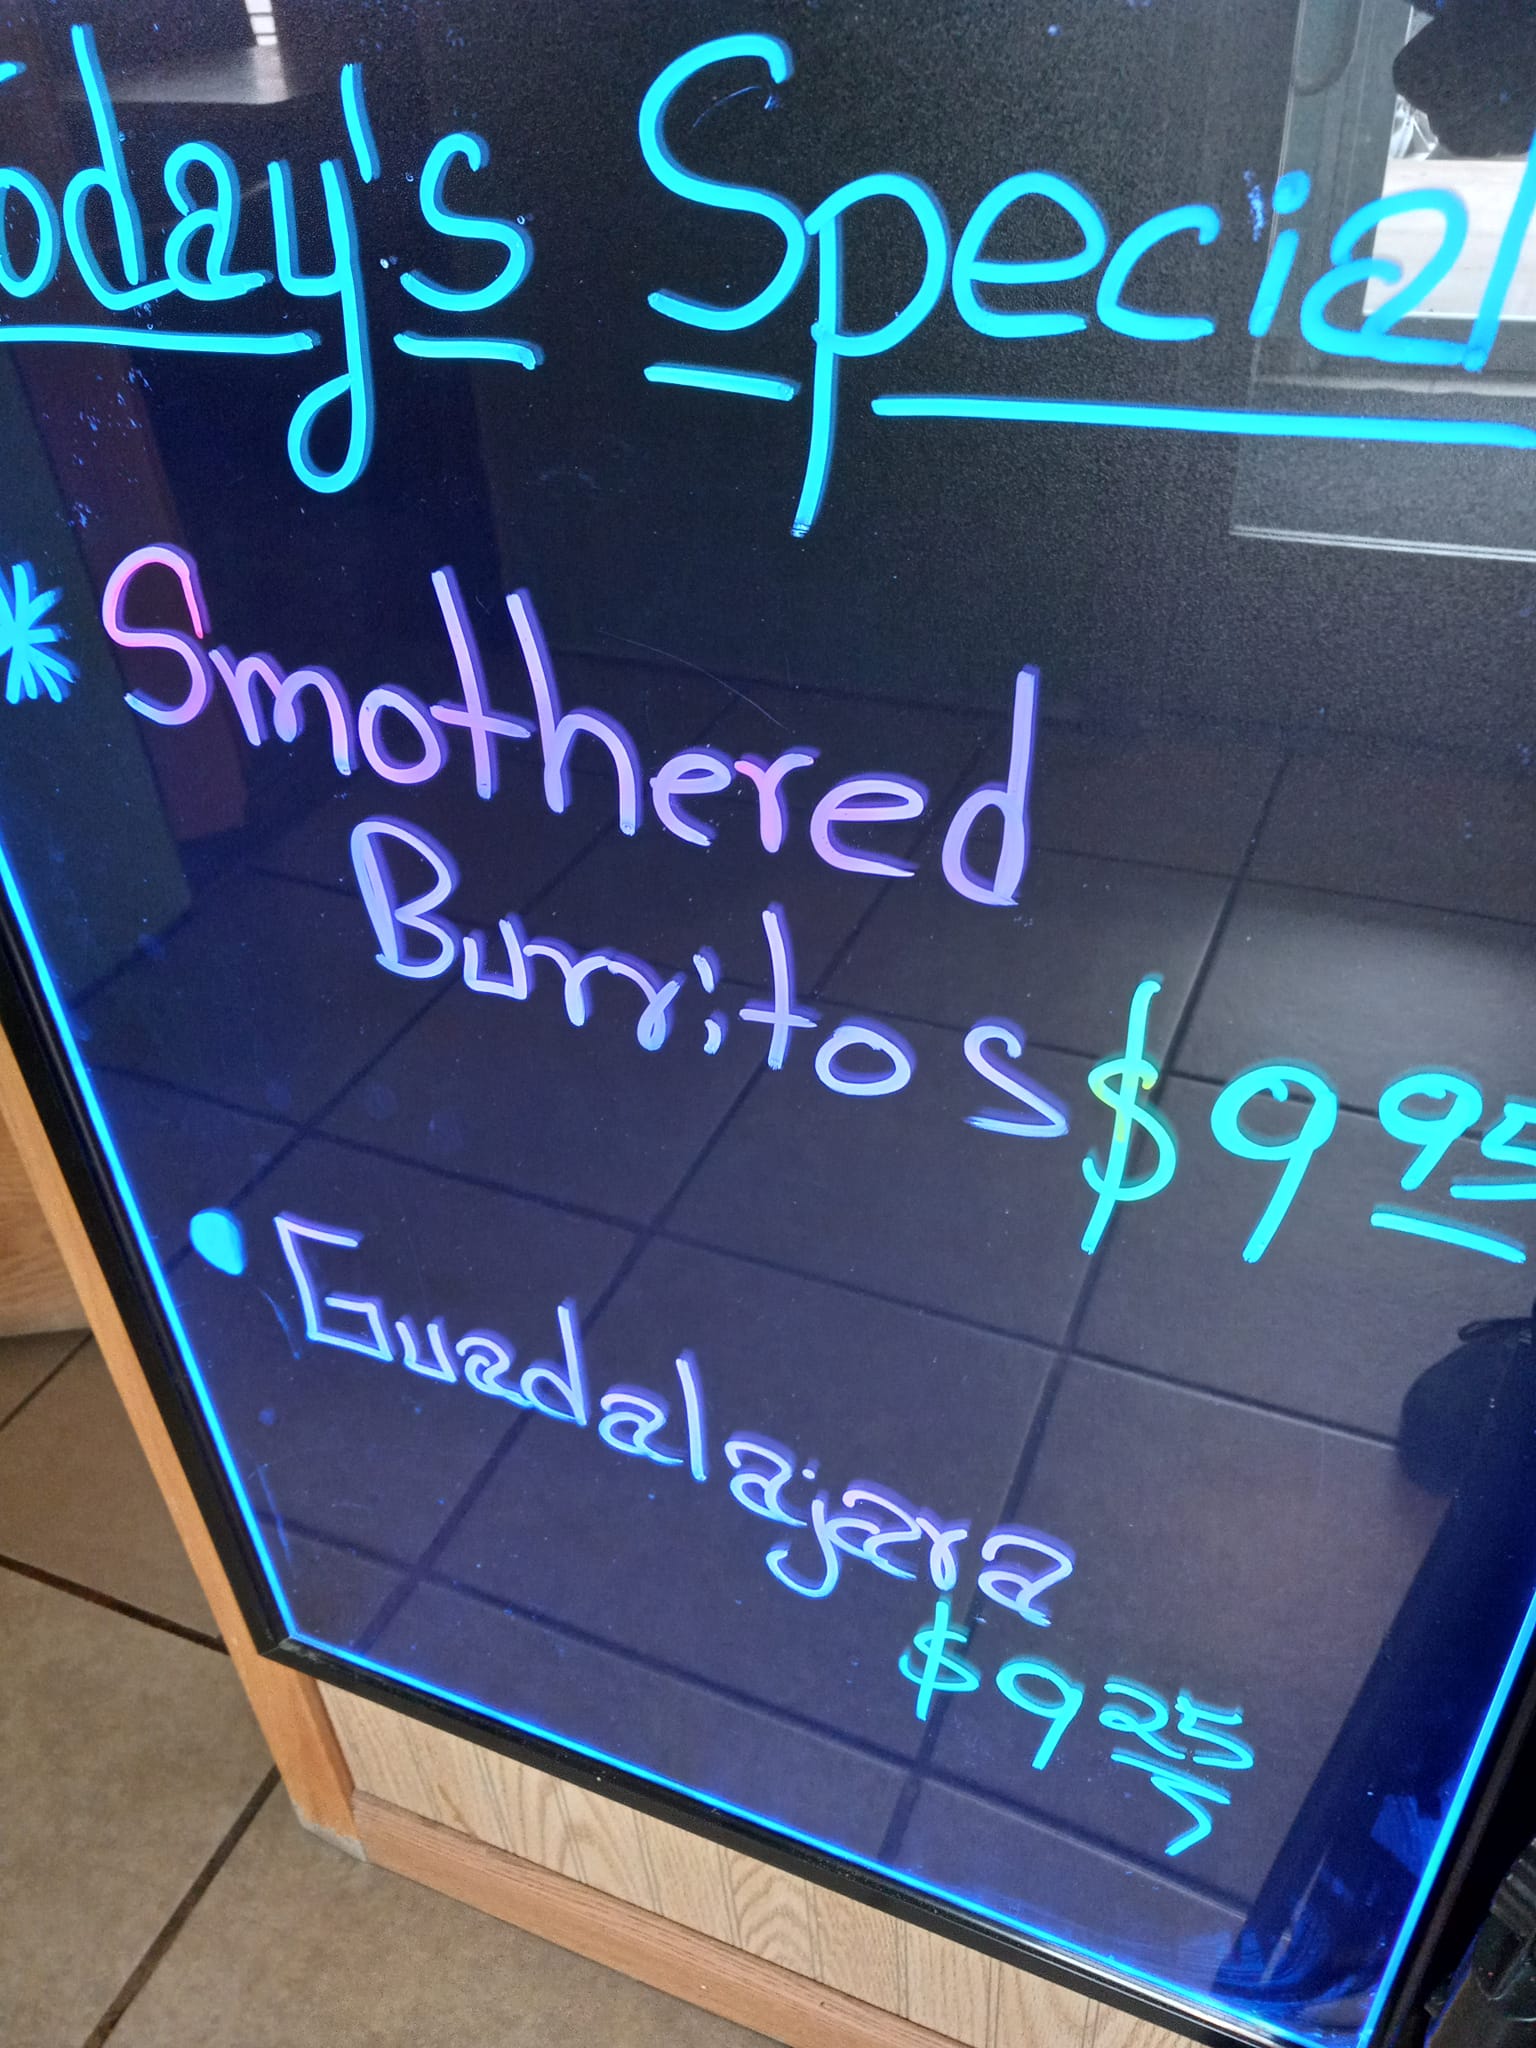 Today's Special
* Smothered
Burritos $9 95
• Guadalajara
$9 25